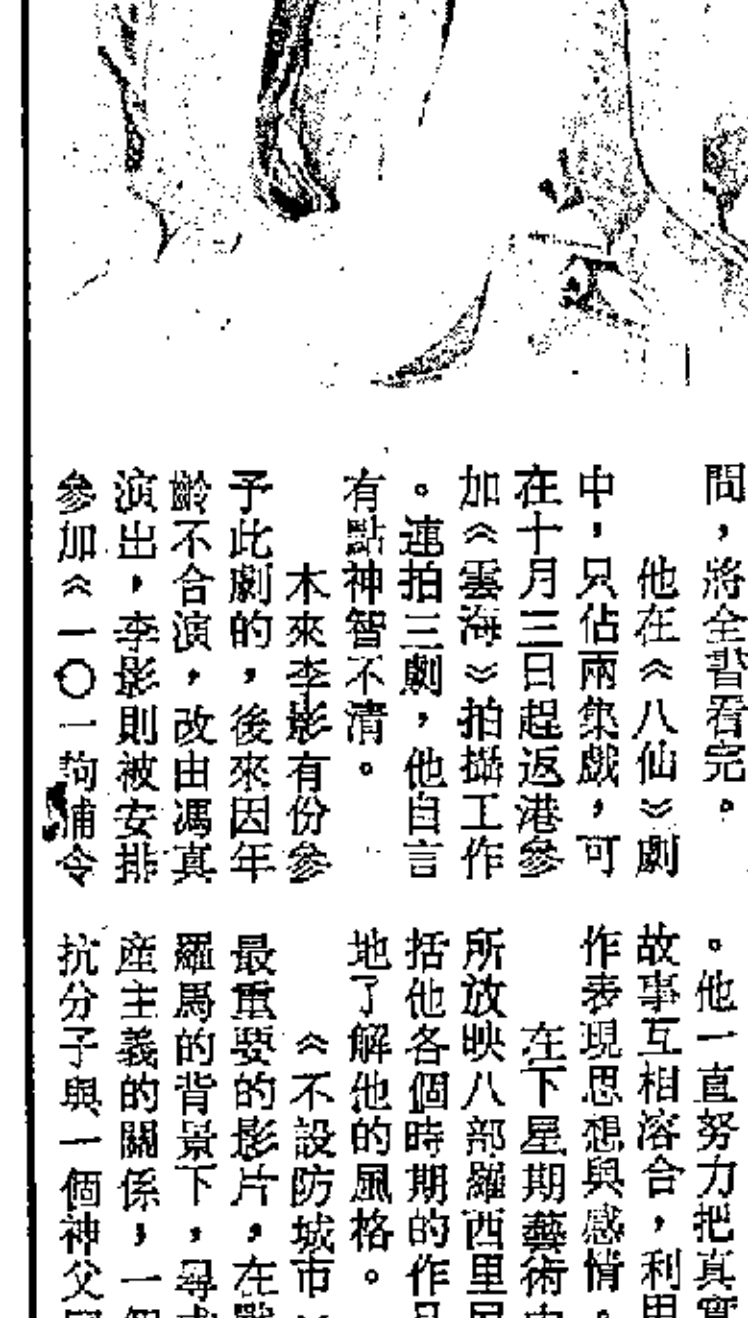 問，將全書看完。
他在《八仙》劇
中，只佔兩集戲，可
在十月三日趕返港參
加《雲海》拍攝工作
。連拍三劇，他自言
有點神智不清。
本來李影有份參
予此劇的，後來因年
齡不合演，改由馮真
演出，李影則被安排
參加《一〇一拘捕令
。他一直努力把真實
故事互相溶合，利用
作表現思想與感情。
在下星期藝術中
所放映八部羅西里尼
括他各個時期的作品
地了解他的風格。
《不設防城市》
最重要的影片，在戰
羅馬的背景下，尋求
產主義的關係，一個
抗分子與一個神父